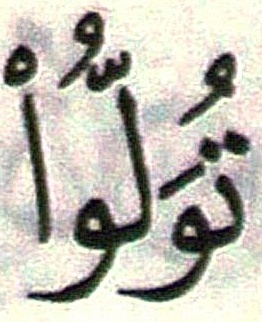 تُوَلُّوا۟